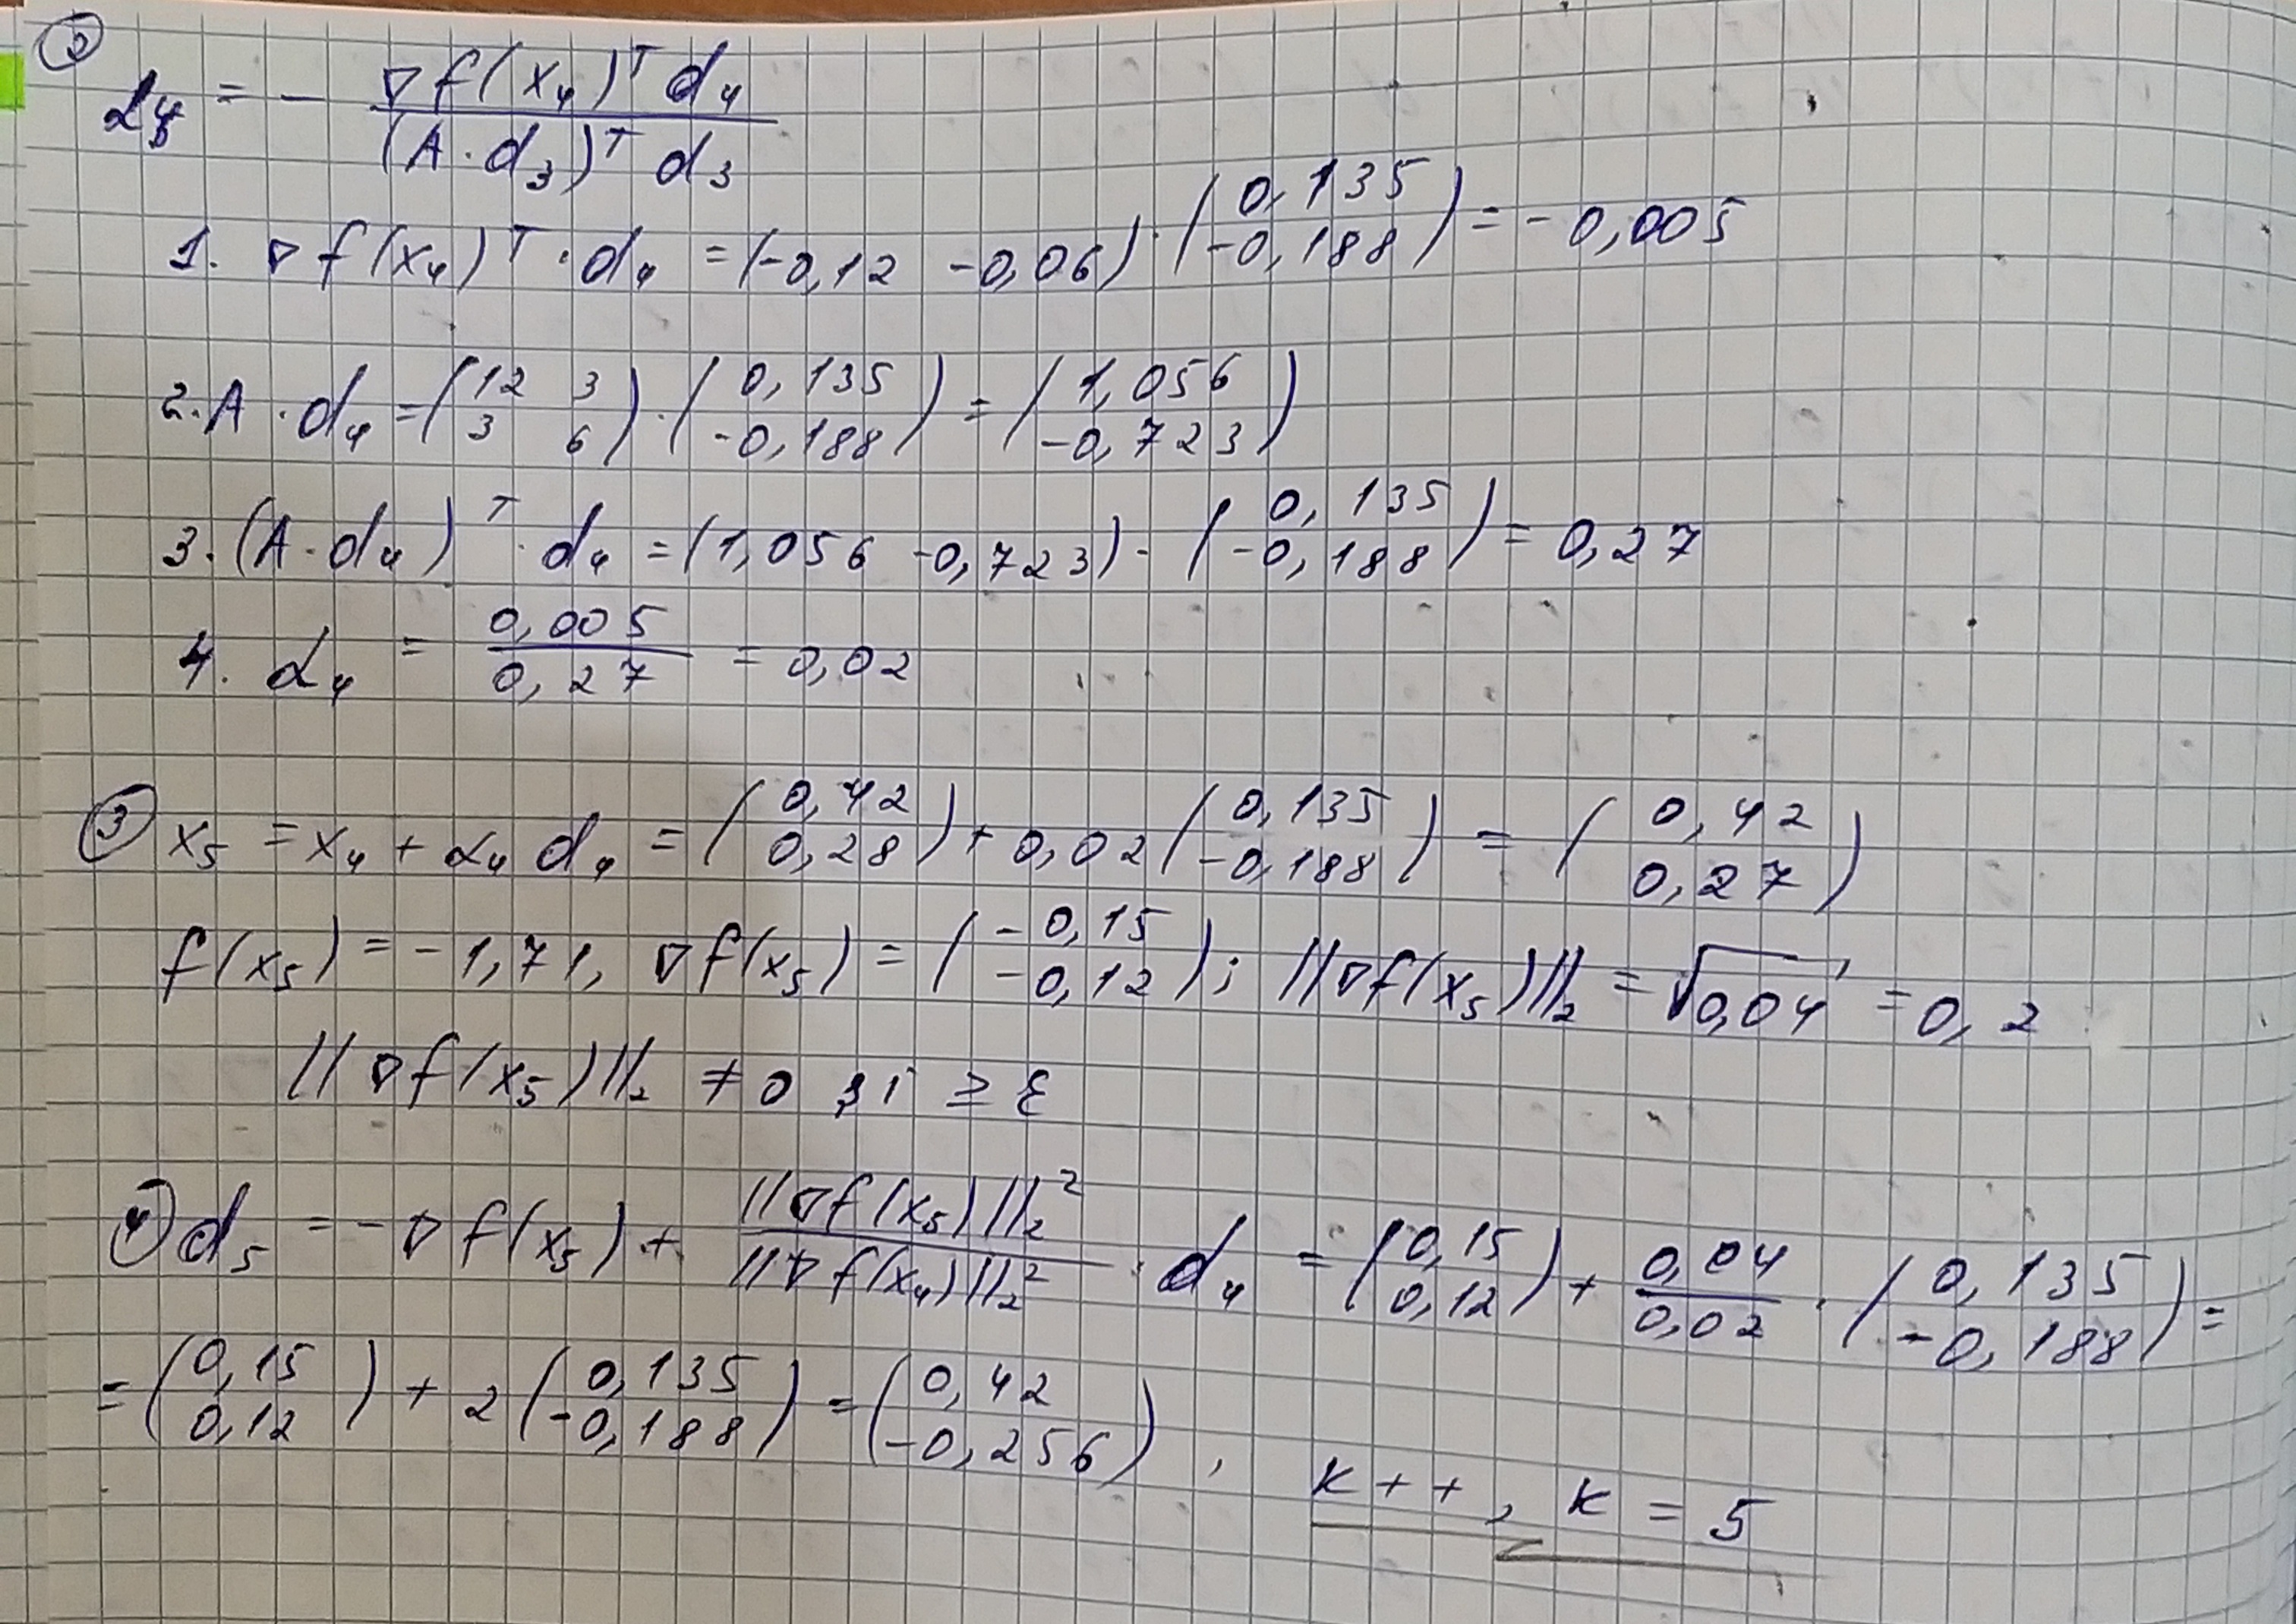 ② α₄ = - ∇f(x₄)ᵀ d₄ / (A·d₃)ᵀ d₃
1. ∇f(x₄)ᵀ·d₄ = (-0,12 -0,06)·(0,135 -0,188) = -0,005
2. A·d₄ = (12 3 3 6)·(0,135 -0,188) = (1,056 -0,723)
3. (A·d₄)ᵀ·d₄ = (1,056 -0,723)·(0,135 -0,188) = 0,27
4. α₄ = 0,005 / 0,27 = 0,02
③ x₅ = x₄ + α₄ d₄ = (0,42 0,28) + 0,02 (0,135 -0,188) = (0,42 0,27)
f(x₅) = -1,71, ∇f(x₅) = (-0,15 -0,12); ||∇f(x₅)||₂ = √0,04 = 0,2
||∇f(x₅)||₂ ≠ 0 și ≥ ε
④ d₅ = -∇f(x₅) + ||∇f(x₅)||₂² / ||∇f(x₄)||₂² · d₄ = (0,15 0,12) + 0,04 / 0,02 · (0,135 -0,188) =
= (0,15 0,12) + 2 (0,135 -0,188) = (0,42 -0,256), k++, k = 5